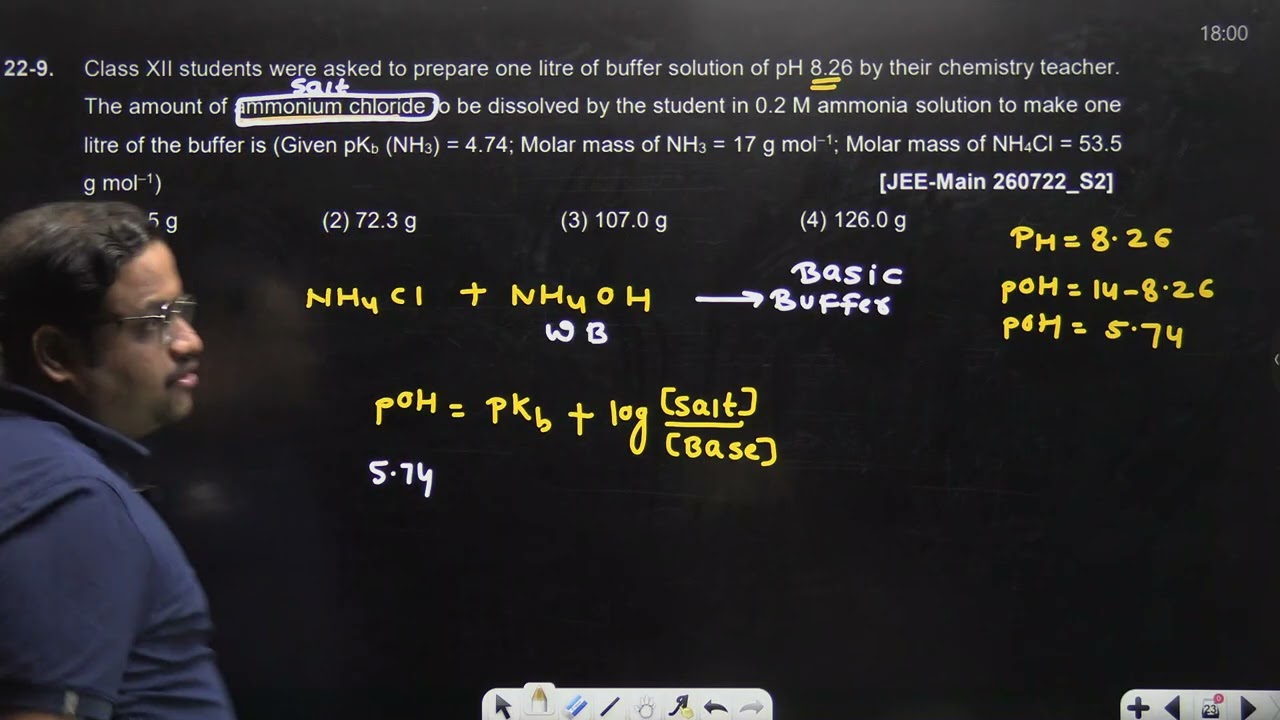 18:00
22-9. Class XII students were asked to prepare one litre of buffer solution of pH 8.26 by their chemistry teacher.
Salt
The amount of ammonium chloride to be dissolved by the student in 0.2 M ammonia solution to make one
litre of the buffer is (Given pKb (NH₃) = 4.74; Molar mass of NH₃ = 17 g mol⁻¹; Molar mass of NH₄Cl = 53.5
g mol⁻¹) [JEE-Main 260722_S2]
5 g (2) 72.3 g (3) 107.0 g (4) 126.0 g
PH = 8.26
NH4Cl + NH4OH ⟶ Basic Buffer
WB
pOH = 14-8.26
pOH = 5.74
pOH = pKb + log [Salt]/[Base]
5.74
23